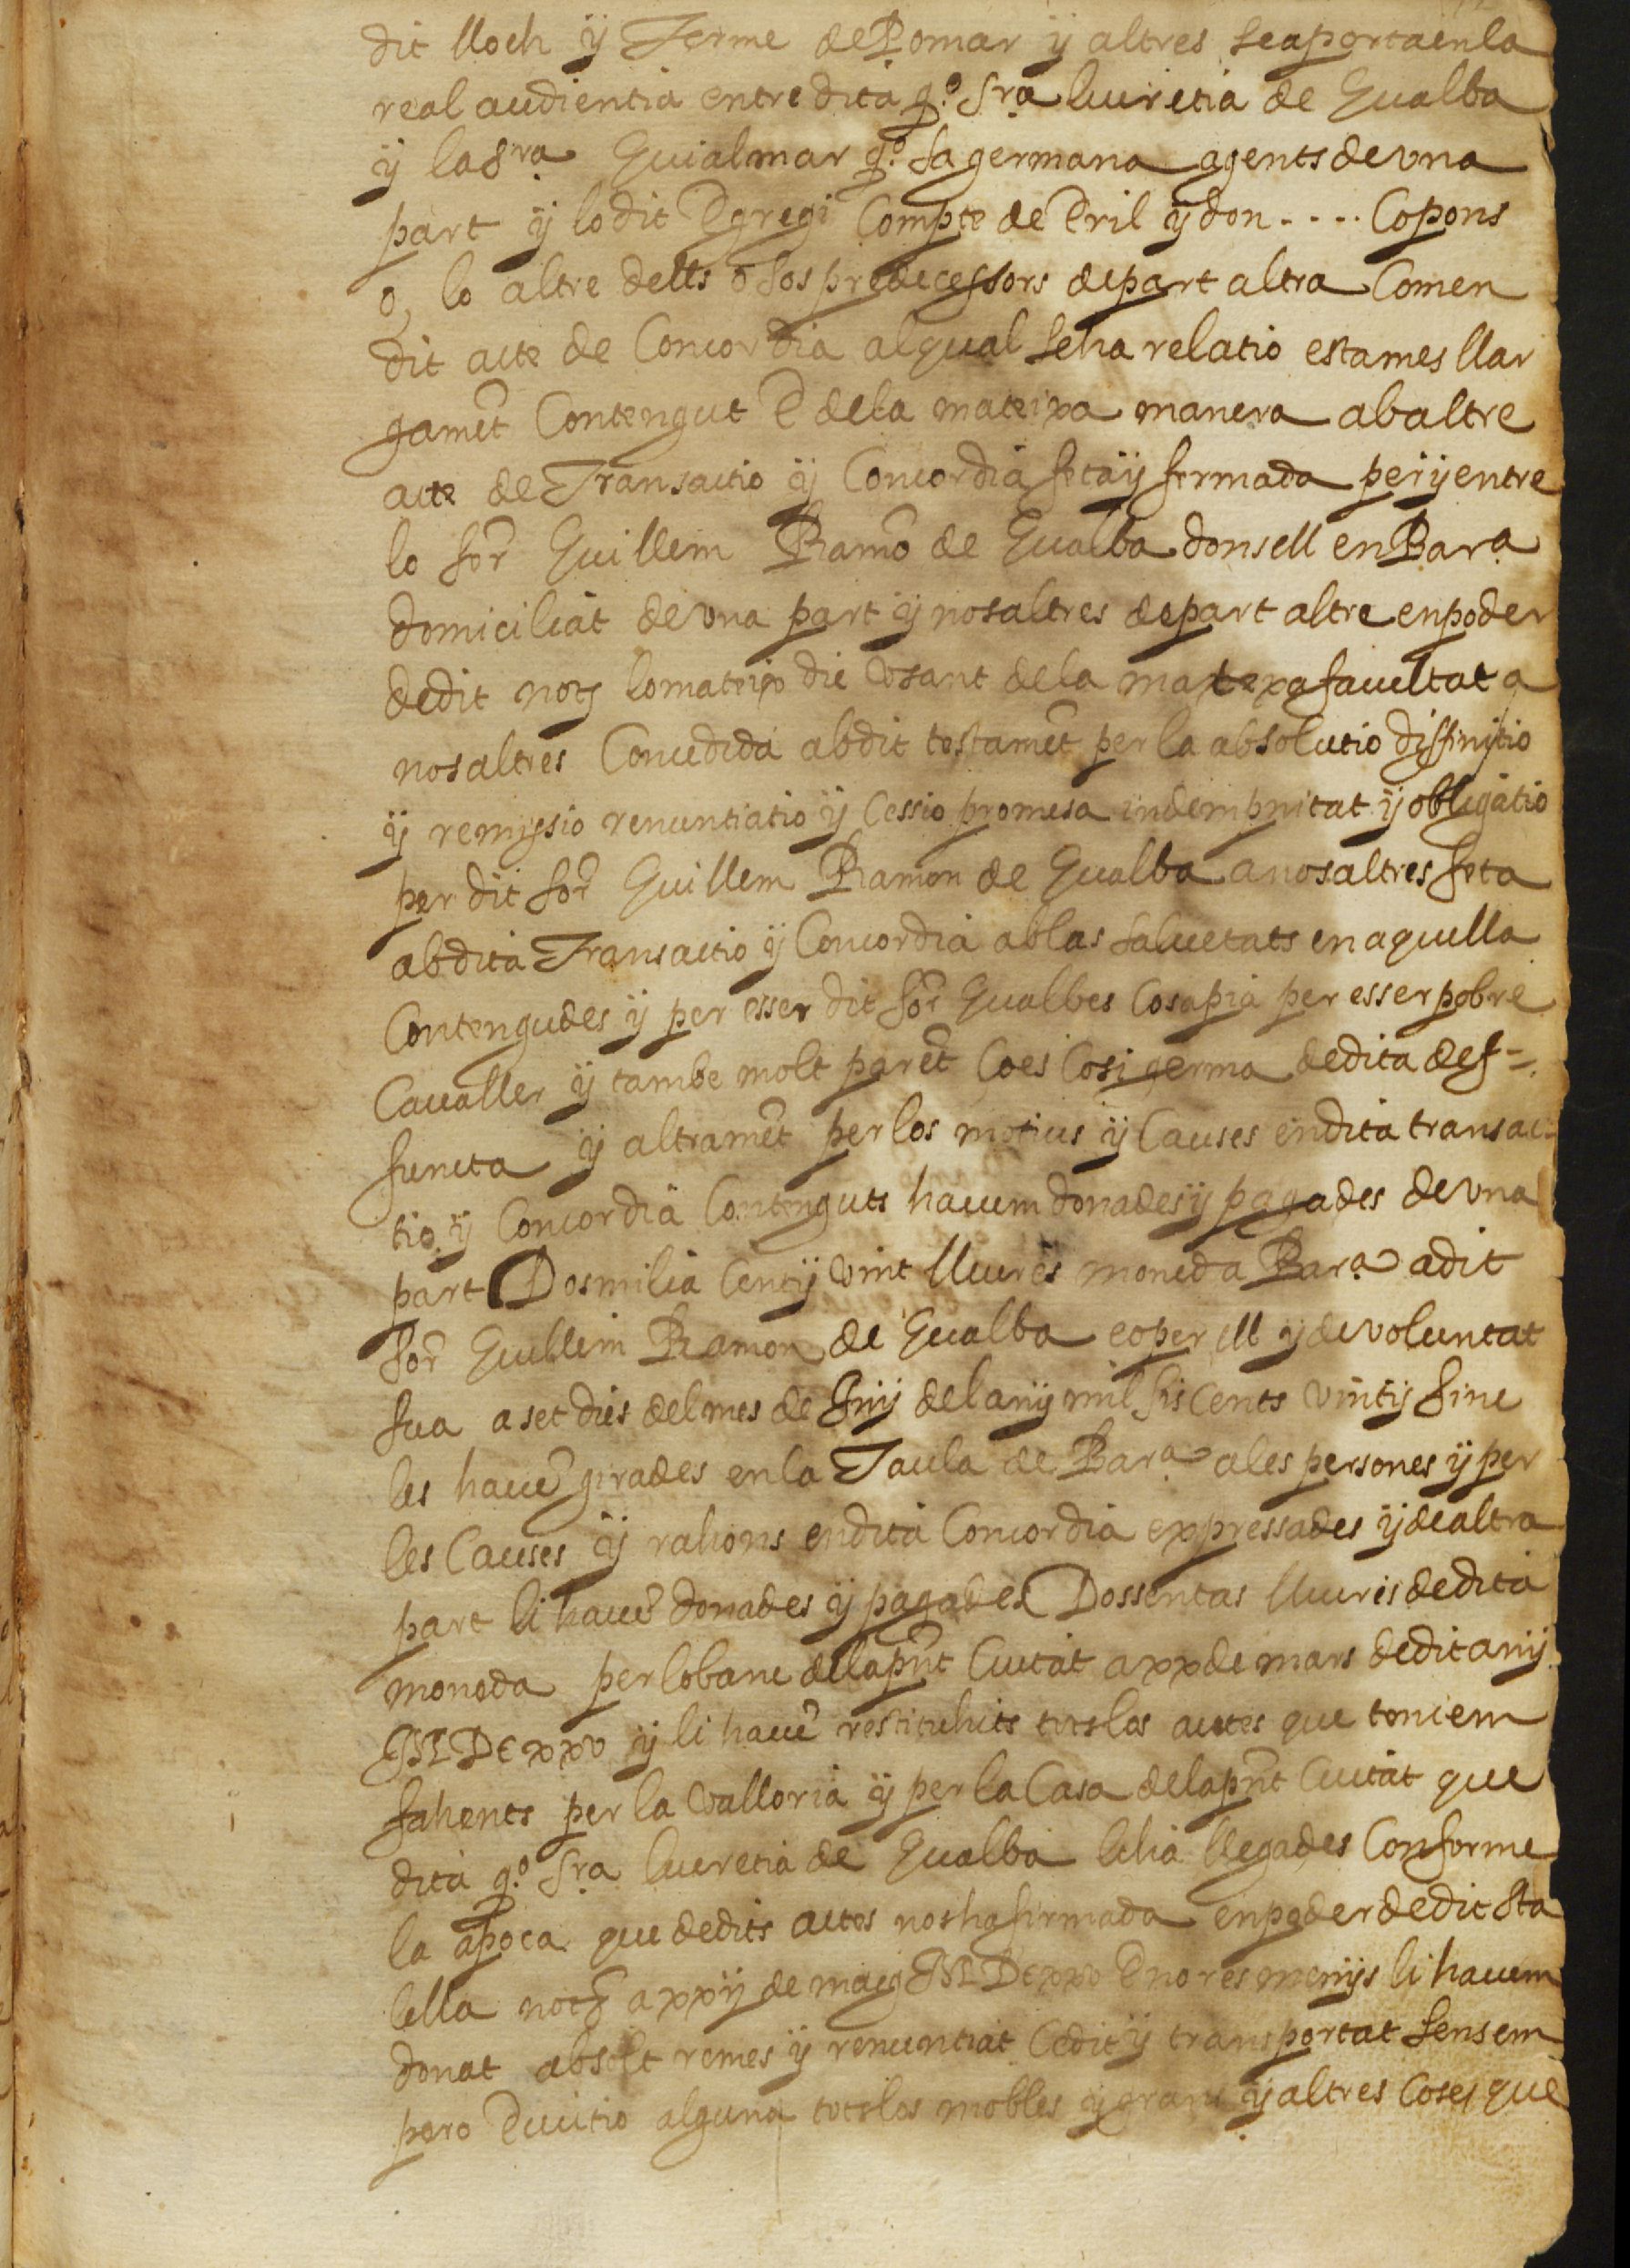 dit lloch ÿ Terme de Pomar ÿ altres seaportaenla
real audientia entre dita q.º Sra lucretia de Gualba
ÿ la Sra Guialmar q.º sa germana agents de vna
part ÿ lo dit Egregi Compte de Eril ÿ don .... Copons
o, lo altre dells o sos predecessors de part altra Comen
dit acte de Concordia al qual seha relatio esta mes llar
gamēt Contengut E de la mateixa manera ab altre
acte de Transactio ÿ Concordia feta ÿ fermada per ÿ entre
lo sor̄ Guillem Ramō de Gualba donsell en Bara
domiciliat de vna part ÿ nosaltres de part altre en poder
de dit notȝ lo mateix die vsant de la matexa facultat a
nosaltres Concedida ab dit testamēt per la absolutio diffinitio
ÿ remissio renuntiatio ÿ Cessio promesa indempnitat ÿ obligatio
per dit sor̄ Guillem Ramon de Gualba a nosaltres feta
ab dita Transactio ÿ Concordia ab las saluetats en aquella
Contengudes ÿ per esser dit sor̄ Gualbes Cosapia per esser pobre
Caualler ÿ tambe molt parēt Coes Cosi germa de dita def=
functa ÿ altramēt per los motius ÿ Causes en dita transac=
tio ÿ Concordia Contenguts hauem donades ÿ pagades de vna
part Dosmilia Cent ÿ vint lliures moneda Bara a dit
sor̄ Guillem Ramon de Gualba eo per ell ÿ de voluntat
sua a set dies del mes de Juÿ del anÿ mil sis Cents vint ÿ sinc
les hauē girades en la Taula de Bara a les persones ÿ per
les Causes ÿ rahons en dita Concordia expressades ÿ de altra
part li hauē donades ÿ pagades Dossentas lliures de dita
moneda per lo banc de la pn̄t Ciutat a xx de mars de dit anÿ
MDCxxv ÿ li hauē restituhits tots los actes que teniem
fahents per la Valloria ÿ per la Casa de la pn̄t Ciutat que
dita q.º Sra lucretia de Gualba li ha llegades Conforme
la apoca que de dits actes nos ha firmada en poder de dit Sta
lella notȝ a xxij de maig MDCxxv E no res menÿs li hauem
donat absolt remes ÿ renuntiat Cedit ÿ transportat sens em
pero Euictio alguna tots los mobles ÿ grans ÿ altres Coses que